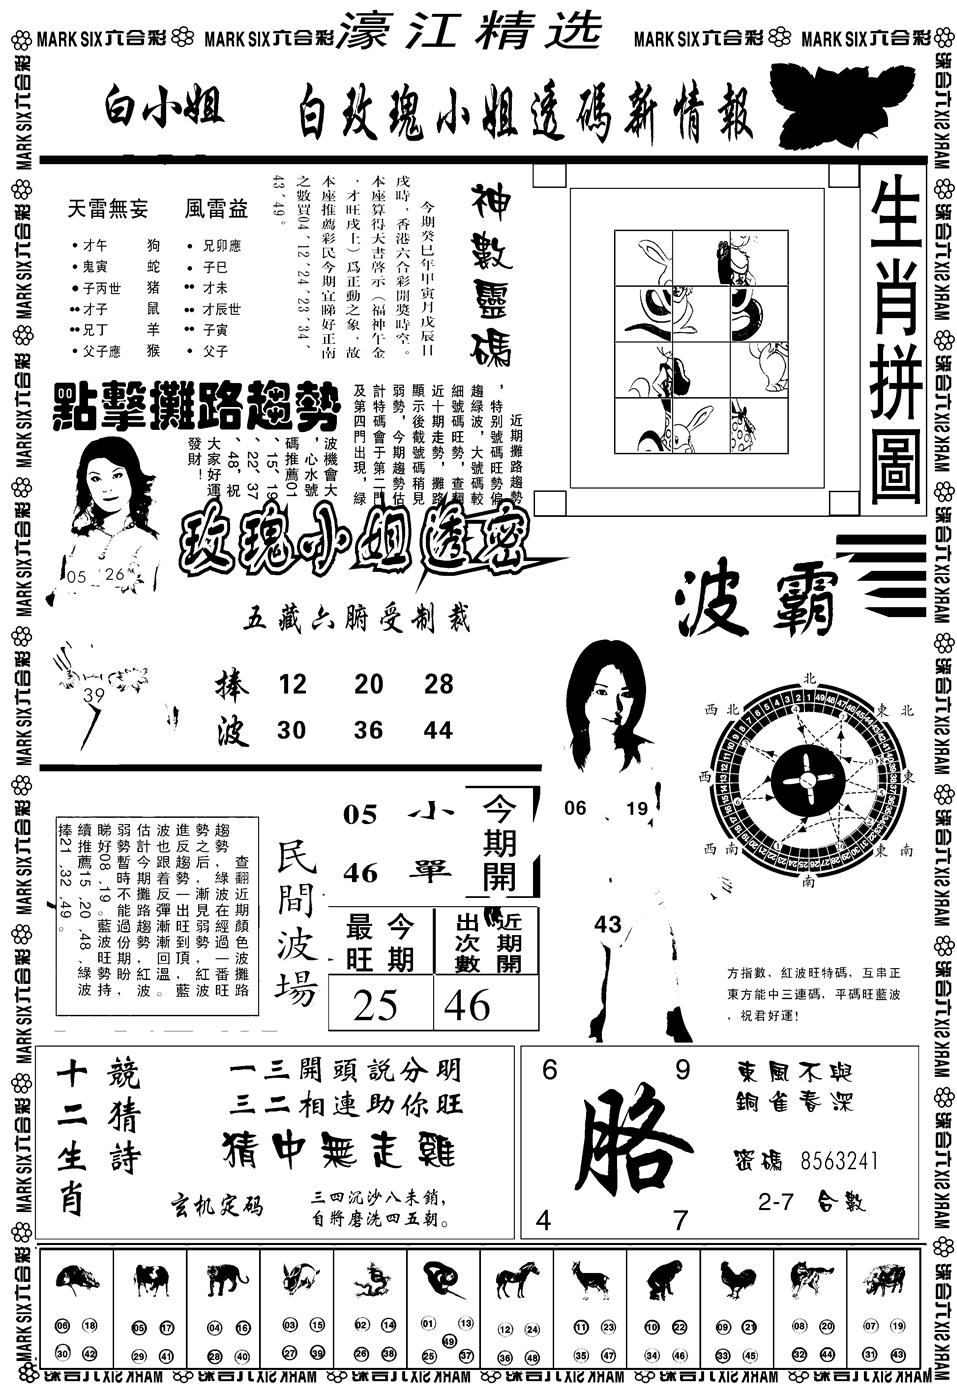 MARK SIX六合彩 MARK SIX六合彩 濠江精选 MARK SIX六合彩 MARK SIX六合彩
白小姐 白玫瑰小姐透碼新情報
天雷無妄 風雷益
才午 狗 兄卯應
鬼寅 蛇 子巳
子丙世 豬 才未
才子 鼠 才辰世
兄丁 羊 子寅
父子應 猴 父子
神數靈碼
今期癸巳年甲寅月戊辰日
戌時，香港六合彩開獎時空。
本座算得天書啓示（福神午金
，才旺戌上）爲正動之象，故
本座推薦彩民今期宜睇好正南
之數買04、12、24、23、34、
43、49。
生肖拼圖
點擊攤路趨勢
近期攤路趨勢
，特别號碼旺勢偏
趨綠波，大號碼較
細號碼旺勢，查翻
近十期走勢，攤路
顯示後截號碼稍見
弱勢，今期趨勢估
計特碼會于第二門
及第四門出現，綠
波機會大
，心水號
碼推薦01
、15、19
、22、37
、48，祝
大家好運
發財！
05 26
39
玫瑰小姐透密
五藏六腑受制裁
捧 12 20 28
波 30 36 44
波霸
06 19
43
北
西北 東北
西 東
西南 東南
南
方指數，紅波旺特碼，互串正
東方能中三連碼，平碼旺藍波
，祝君好運！
查翻近期顏色波攤路
趨勢，綠波在經過一番旺
勢之后，漸見弱勢，紅波
進反趨勢一出旺到頂，藍
波也跟着反彈漸漸回溫。
估計今期攤路趨勢，紅波
弱勢暫時不能過份期盼，
睇好08、19。藍波旺勢持
續推薦15、20、48，綠波
捧21、32、49。
民間波場
05 小
46 單
今期開
最旺 今期
出次數 近期開
25 46
十二生肖
競猜詩
一三開頭説分明
三二相連助你旺
猜中無走雞
玄机定码
三四沉沙八未銷，
自將磨洗四五朝。
6 9
胳
4 7
東風不與
銅雀春深
密碼 8563241
2-7 合數
06 18 05 17 04 16 03 15 02 14 01 13 12 24 11 23 10 22 09 21 08 20 07 19
49
30 42 29 41 28 40 27 39 26 38 25 37 36 48 35 47 34 46 33 45 32 44 31 43